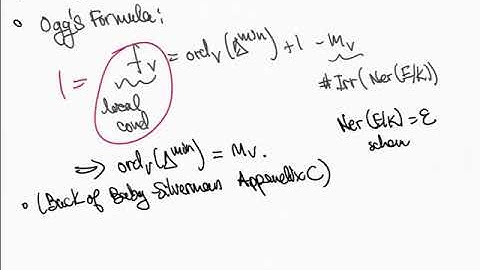 • Ogg's Formula:
1 = f_v = ord_v(Δ^min) + 1 - m_v
local cond
# Irr(Ner(E/K))
Ner(E/K) = ℰ
⇒ ord_v(Δ^min) = m_v.
• (Back of Baby Silverman Appendix C)